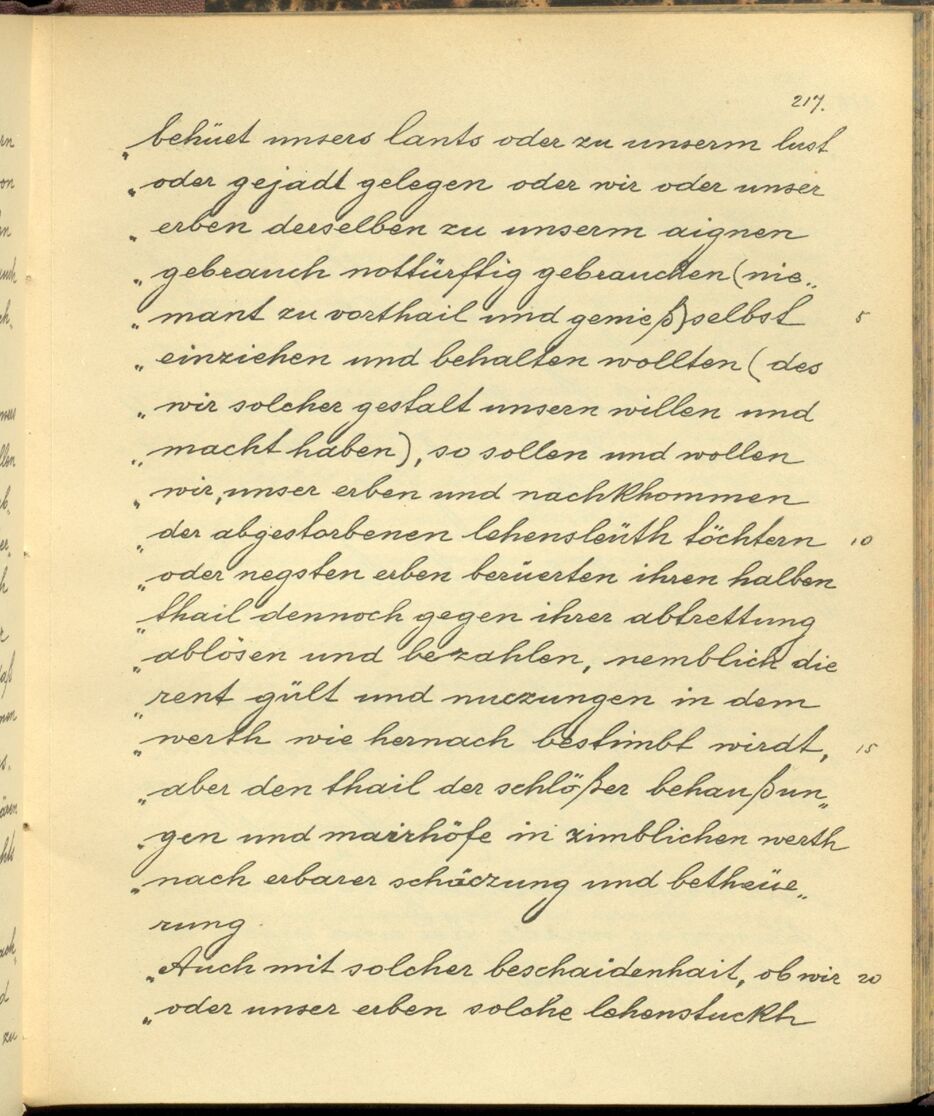 217.
„behüet unsers lants oder zu unserm lust
„oder gejadt gelegen oder wir oder unser
„erben derselben zu unserm aignen
„gebrauch nottürftig gebrauchen (nie„
„mant zu vorthail und genieß) selbst 5
„einziehen und behalten wollten (des
„wir solcher gestalt unsern willen und
„macht haben), so sollen und wollen
„wir, unser erben und nachkhommen
„der abgestorbenen lehensleüth töchtern 10
„oder negsten erben berüerten ihren halben
„thail dennoch gegen ihrer abtrettung
„ablösen und bezahlen, nemblich die
„rent gült und nuczungen in dem
„werth wie hernach bestimbt wirdt, 15
„aber den thail der schlößer behaußun„
„gen und mairhöfe in zimblichen werth
„nach erbarer schäczung und betheüe„
rung.
„Auch mit solcher beschaidenhait, ob wir 20
„oder unser erben solche lehenstuckh